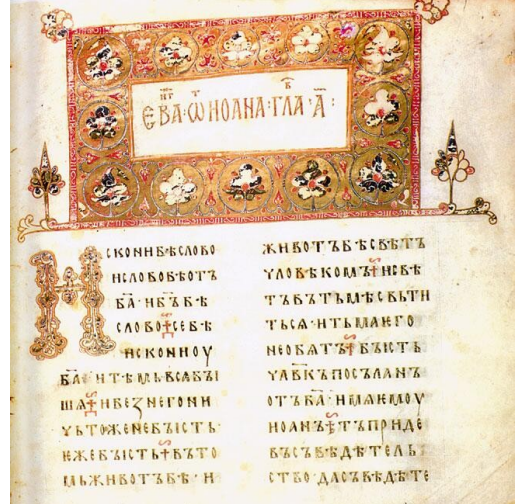 ЕВА · Ѡ ИОАНА · ГЛА · А҃ ·
ИСКОНИ БѢ СЛОВО
И СЛОВО БѢ ОТЪ
Б҃А · И Б҃Ъ БѢ
СЛОВО · СЕ БѢ
ИСКОНИ ОУ
Б҃А · И ТѢМЬ ВЬСА БЪІ
ШѦ · И БЕЗ НЕГО НИ
ЧЬТОЖЕ НЕ БЪІСТЬ ·
ЕЖЕ БЪІСТЬ · ВЪ ТО
МЬ ЖИВОТЪ БѢ · И
ЖИВОТЪ БѢ СВѢТЪ
ЧЛОВѢКОМЪ · И СВѢ
ТЪ ВЪ ТЬМѢ СВЬТИ
ТЬСѦ · И ТЬМА ЕГО
НЕ ОБѦТЪ · БЪІСТЬ
ЧЛ҃ВКЪ ПОСЪЛАН
ОТЪ Б҃А · ИМѦ ЕМОУ
ИОАНЪ · ТЪ ПРИДЕ
ВЪ СЪВѢДѢТЕЛЬ
СТВО · ДА СЪВѢДѢТЕ